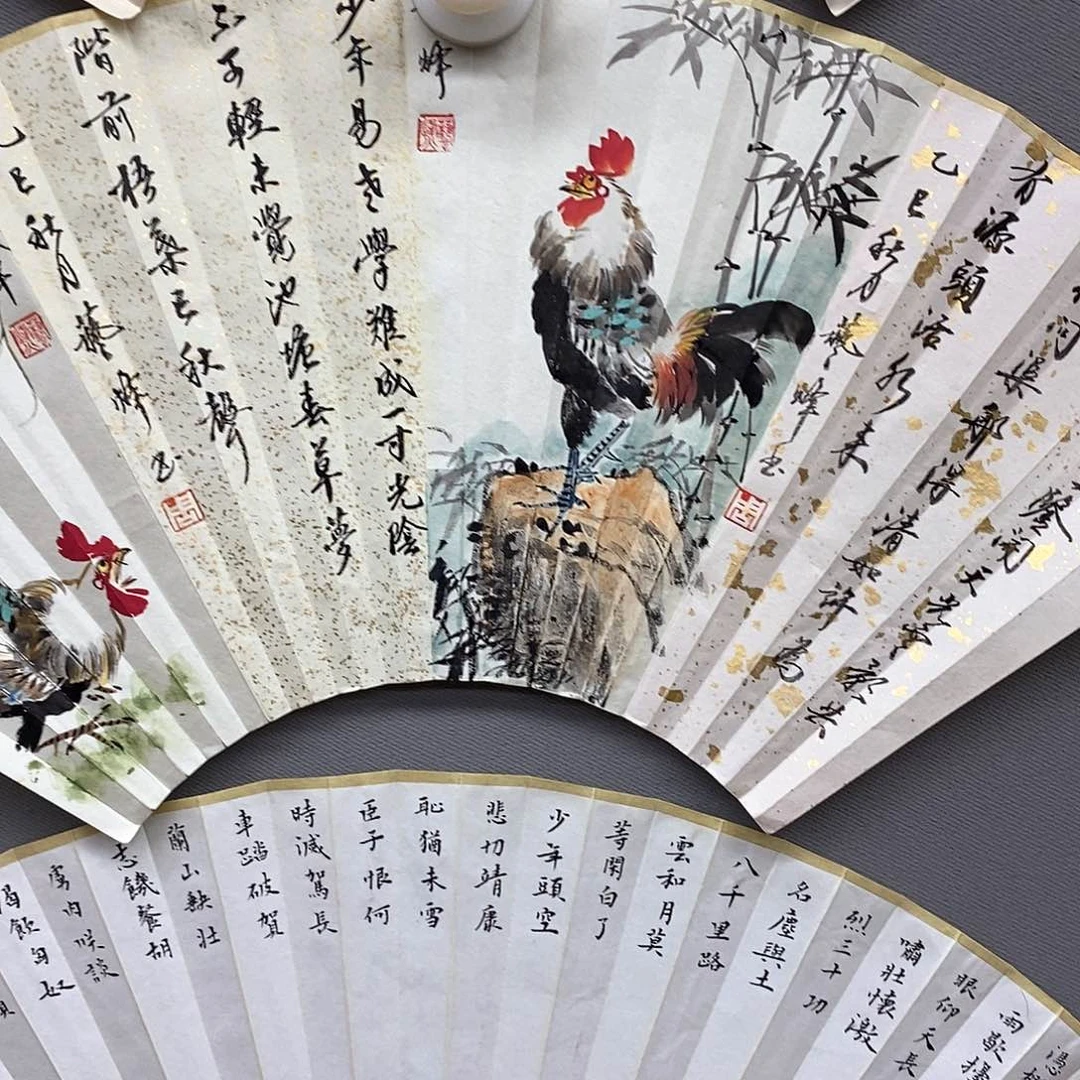 鑒開天光雲影共
問渠那得清如許為
有源頭活水來
乙巳秋月藝峰書
峰
少年易老學難成一寸光陰
不可輕未覺池塘春草夢
階前梧葉已秋聲
乙巳秋月藝峰書
憑
雨歇擡
眼仰天長
嘯壯懷激
烈三十功
名塵與土
八千里路
雲和月莫
等閑白了
少年頭空
悲切靖康
恥猶未雪
臣子恨何
時減駕長
車踏破賀
蘭山缺壯
志饑餐胡
虜肉咲談
渴飲匈奴